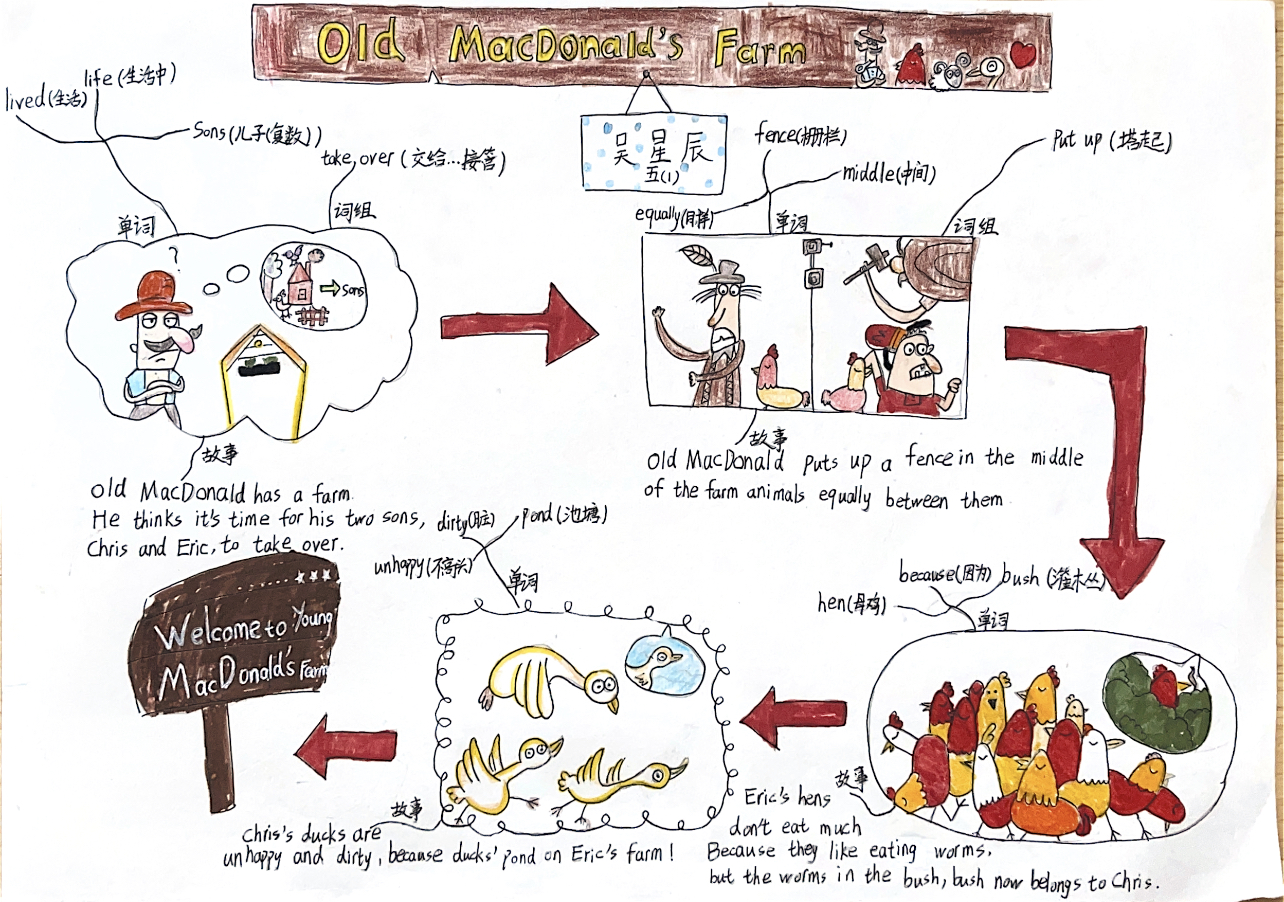 Old MacDonald's Farm
吴星辰
五(1)
life(生活中)
lived(生活)
Sons(儿子(复数))
take over(交给...接管)
单词
词组
?
sons
故事
Old MacDonald has a farm.
He thinks it's time for his two sons,
Chris and Eric, to take over.
fence(栅栏)
middle(中间)
equally(同样)
单词
Put up (塔起)
词组
故事
Old MacDonald puts up a fence in the middle
of the farm animals equally between them
because(因为)
bush (灌木丛)
hen(母鸡)
单词
故事
Eric's hens
don't eat much
Because they like eating worms,
but the worms in the bush, bush now belongs to Chris.
dirty(脏)
pond(池塘)
unhappy(不高兴)
单词
故事
Chris's ducks are
unhappy and dirty, because ducks' pond on Eric's farm!
Welcome to Young
MacDonald's Farm